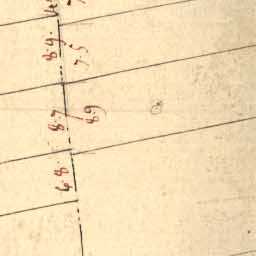 8.9.
7.5
8.7
8.9
6.8.